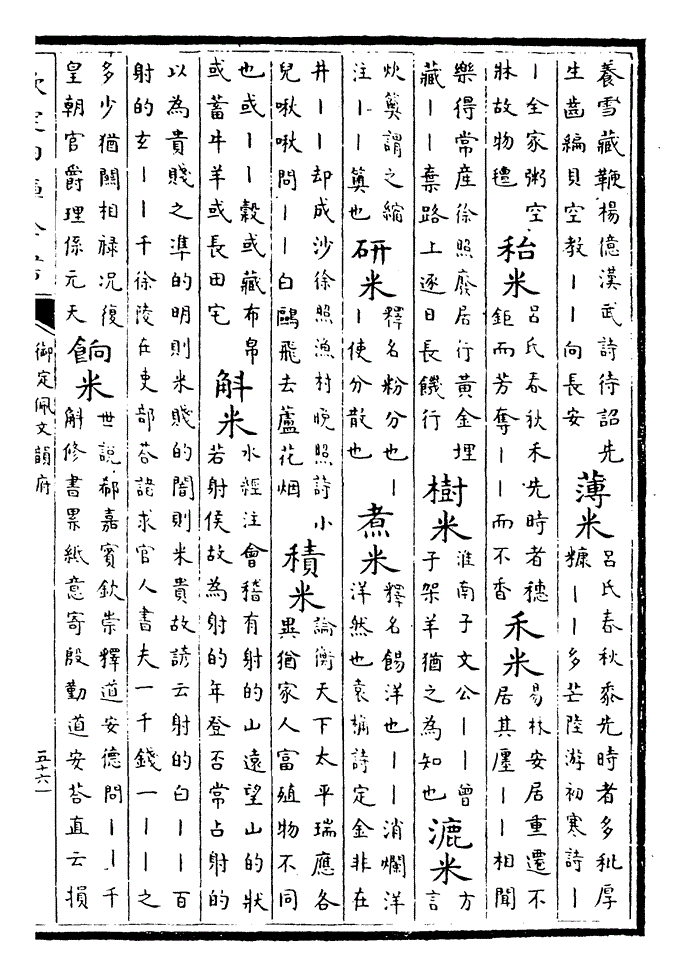 養雪藏鞭楊億漢武詩待詔先
生齒編貝空教丨丨向長安
薄米
呂氏春秋黍先時者多秕厚
糠丨丨多芒陸游初寒詩丨
丨全家粥空
牀故物氊
秮米
呂氏春秋禾先時者穗
鉅而芳奪丨丨而不香
禾米
易林安居重遷不
居其㕓丨丨相聞
樂得常産徐照廢居行黃金埋
藏丨丨棄路上逐日長饑行
樹米
淮南子文公丨丨曾
子架羊猶之為知也
漉米
方
言
炊䉛謂之縮
注丨丨䉛也
研米
釋名粉分也丨
丨使分散也
煮米
釋名餳洋也丨丨消爛洋
洋然也袁桷詩定金非在
井丨丨却成沙徐照漁村晚照詩小
兒啾啾問丨丨白鷗飛去蘆花烟
積米
論衡天下太平瑞應各
異猶家人富殖物不同
也或丨丨穀或藏布帛
或蓄牛羊或長田宅
斛米
水經注會稽有射的山遠望山的狀
若射侯故為射的年登否常占射的
以為貴賤之凖的明則米賤的闇則米貴故諺云射的白丨丨百
射的玄丨丨千徐陵在吏部荅諸求官人書夫一千錢一丨丨之
多少猶關相禄况復
皇朝官爵理係元天
餉米
世說郗嘉賓欽崇釋道安德問丨丨千
斛修書累紙意寄殷勤道安荅直云損
欽定四庫全書
御定佩文韻府
五十六一